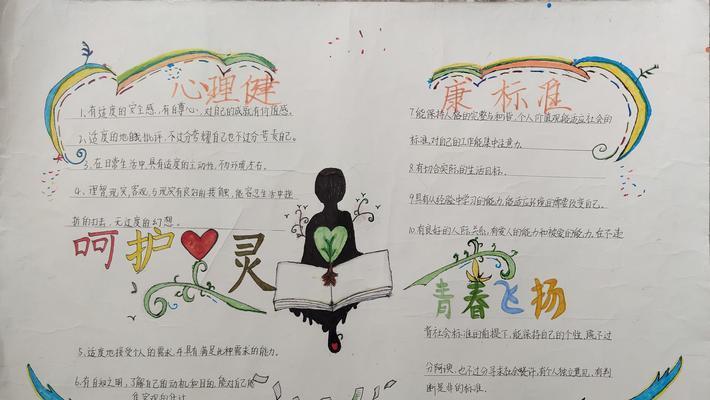 心理健康标准
1、有适度的安全感,有自尊心,对自己的成就有价值感。
2、适度的地自我批评,不过分夸耀自己也不过分苛责自己。
3、在日常生活中,具有适度的主动性,不为环境左右。
4、理智,现实,客观,与现实有良好的接触,能容忍生活中挫
折的打击,无过度的幻想。
呵护心灵
5、适度地接受个人的需求,具有满足此种需求的能力。
6、有自知之明,了解自己的动机和目的,能对自己
7.能保持人格的完整与和谐,个人价值观能适应社会的
标准,对自己的工作能集中注意力。
8.有切合实际的生活目标。
9具有从经验中学习的能力,能适应环境的需要改变自己。
10.有良好的人际关系,有爱人的能力和被爱的能力。在不违
青春飞扬
背社会标准的前提下,能保持自己的个性,既不过
分阿谀,也不过分寻求社会赞许,有个人独立意见,有判
断是非的标准。